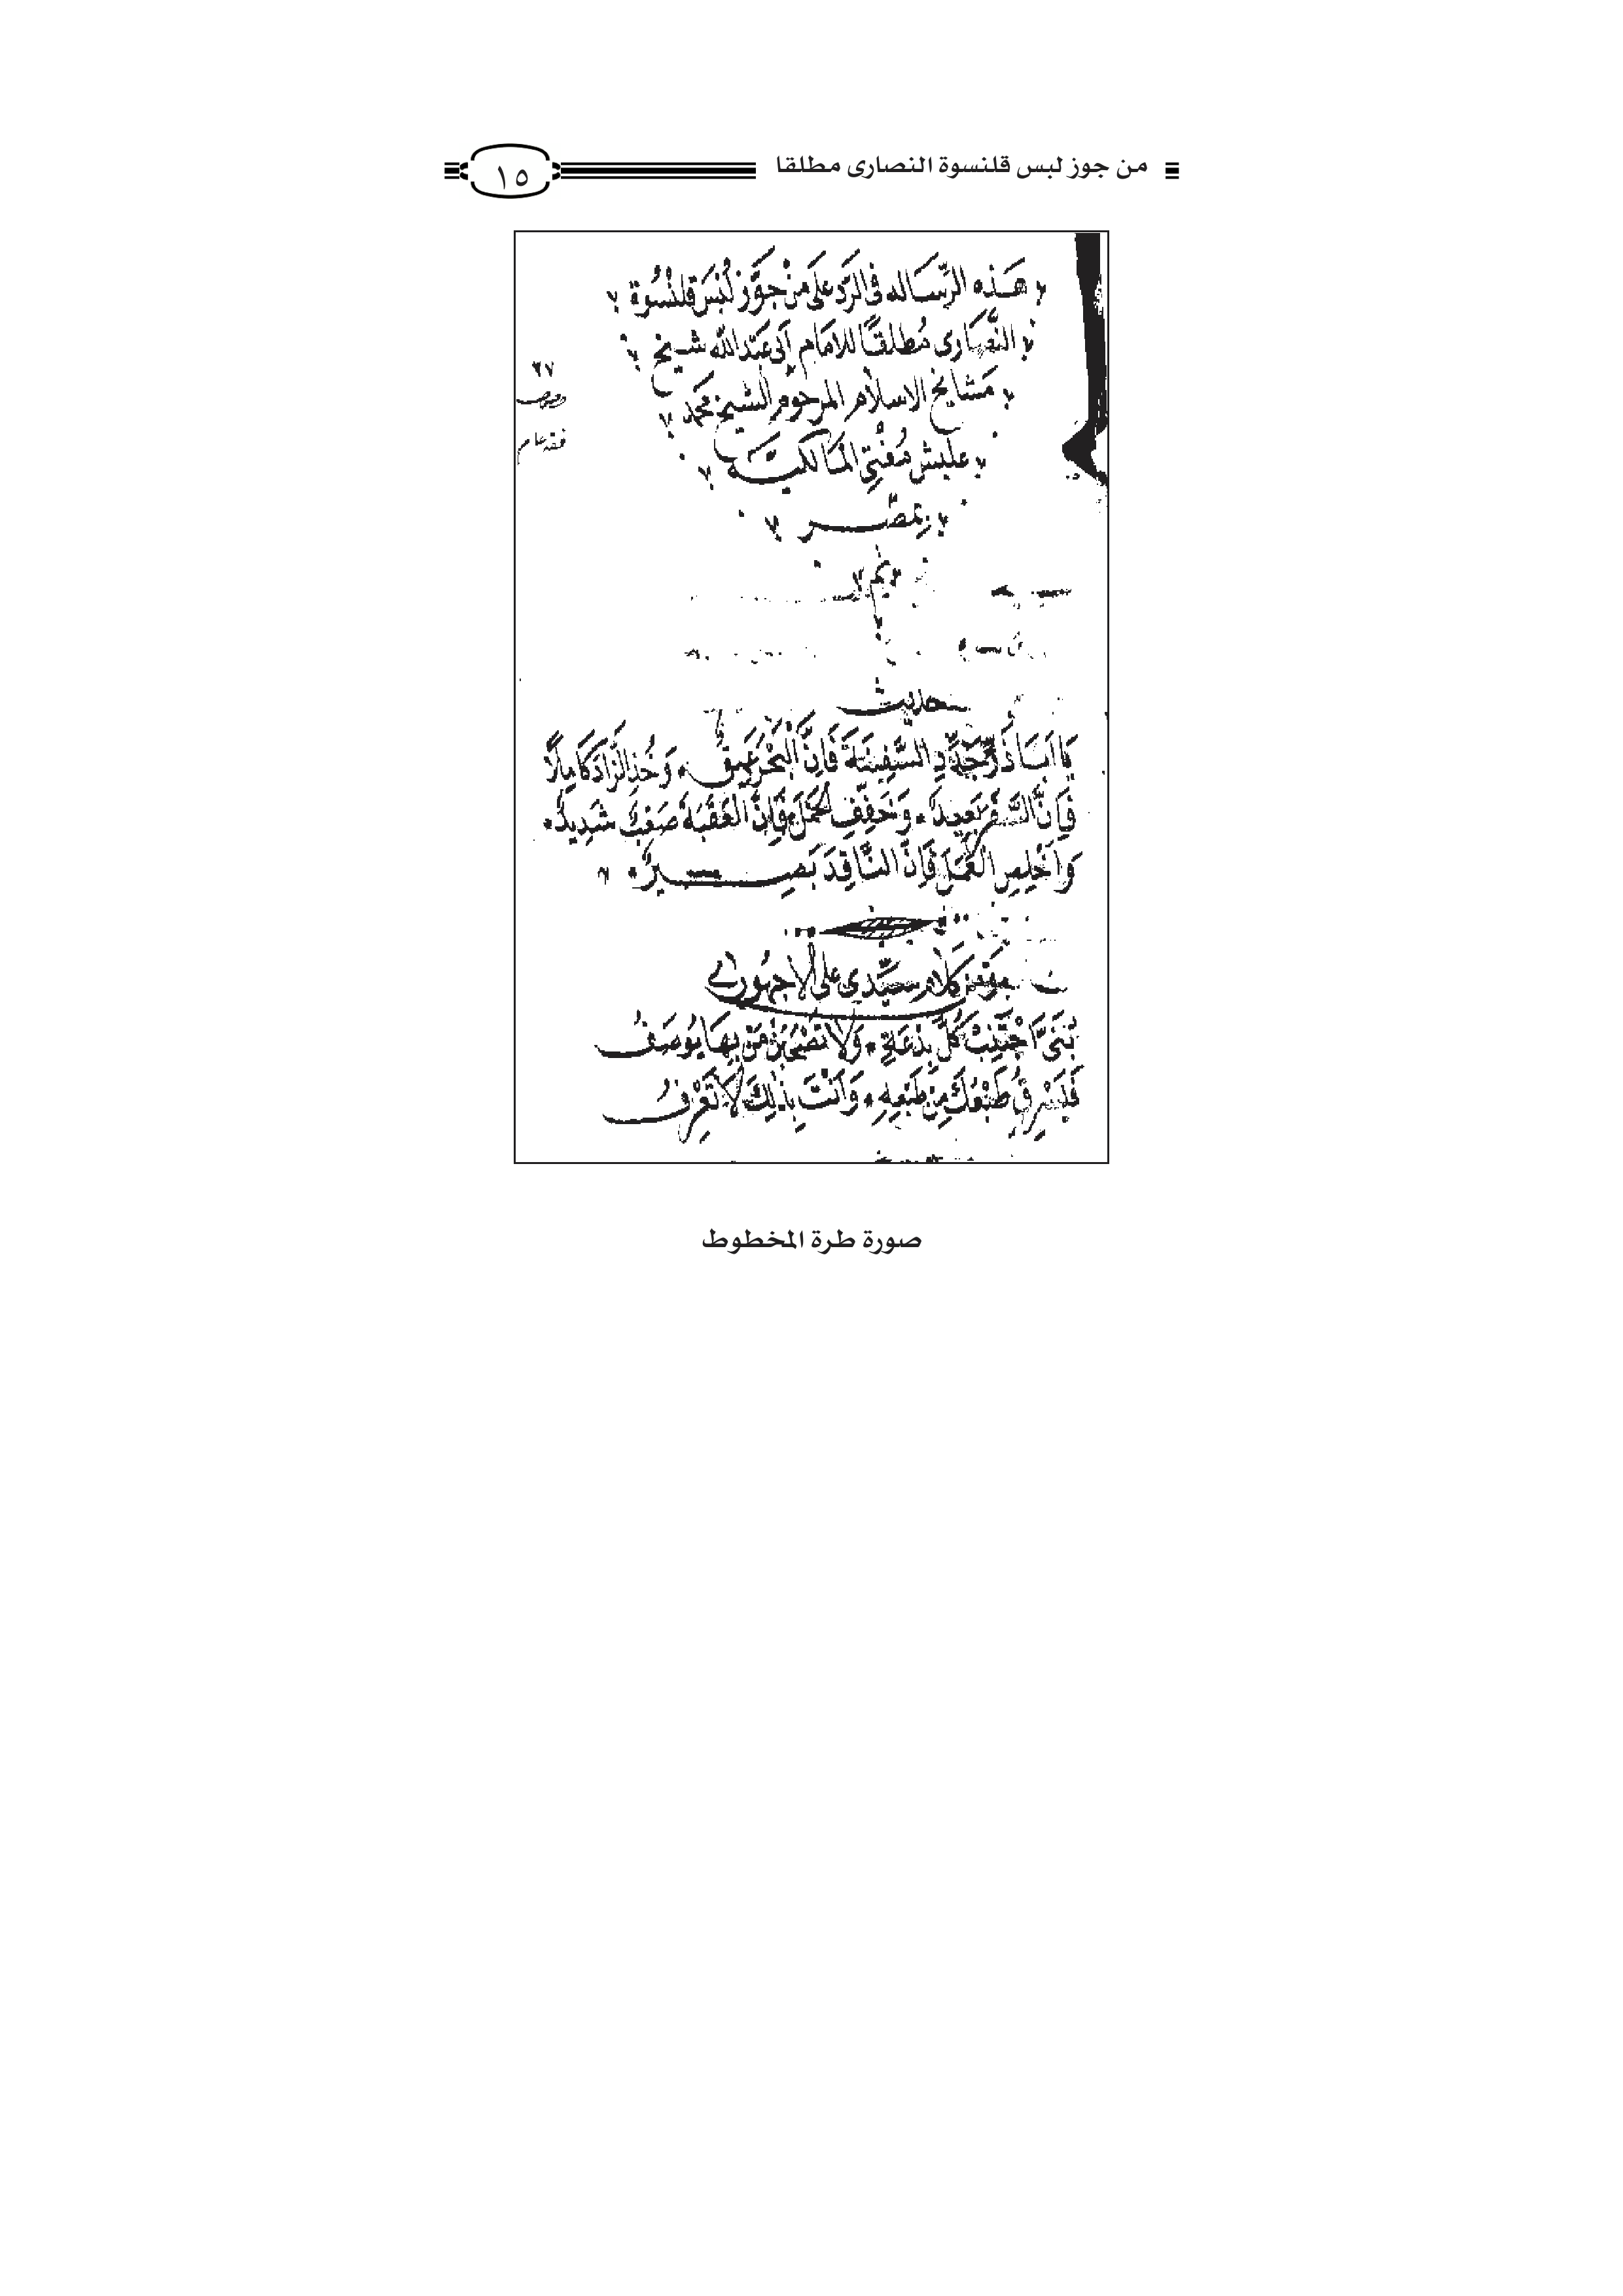 من جوز لبس قلنسوة النصارى مطلقا
١٥
هَذه الرِّسَاله فى الرَّد عَلَى مَنْ جَوَّز لُبْسَ قلنْسُوة
النَّصَارى مُطلقًا للامَام أبى عَبْد الله شيخ
مَشايخ الاسلام المرحوم الشيخ محَمد
عليش مُفْتِى المَالكيَّة
بمصْر
تم
٢٧
فقه عام
حديث
يَا اَبَا ذَرٍّ جَدِّدِ السَّفِينَةَ فَاِنَّ الْبَحْرَ عَمِيقٌ وَخُذِ الزَّادَ كَامِلًا
فَاِنَّ السَّفَرَ بَعِيدٌ وَخَفِّفِ الْحِمْلَ فَاِنَّ الْعَقَبَةَ صَعْبَةٌ شَدِيدٌ
وَاَخْلِصِ الْعَمَلَ فَاِنَّ النَّاقِدَ بَصِيرٌ
كَلَام سَيِّدى على الاجهُورى
بُنَىَّ اجْتَنِبْ كُلَّ بِدْعَةٍ وَلَا تَصْحَبَنْ مَنْ بِهَا يُوصَفُ
فَيَسْرِقُ طَبْعُكَ مِنْ طَبْعِهِ وَاَنْتَ بِذٰلِكَ لَا تَعْرِفُ
صورة طرة المخطوط